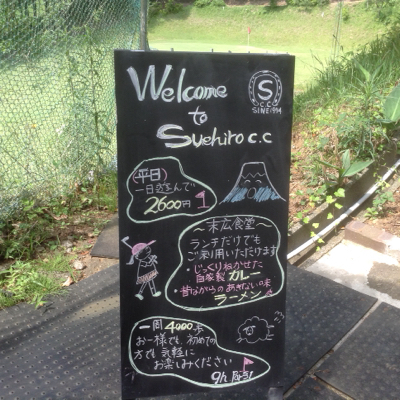 Welcome
to
Suehiro c.c
S
C.C
SINCE 1994
(平日)
一日遊んで
2600円
〜末広食堂〜
ランチだけでも
ご利用いただけます
・じっくりねかせた
自家製 カレー
・昔ながらのあきない味
ラーメン
一周4000歩
お一様でも、初めての
方でも気軽に
お楽しみください
9h